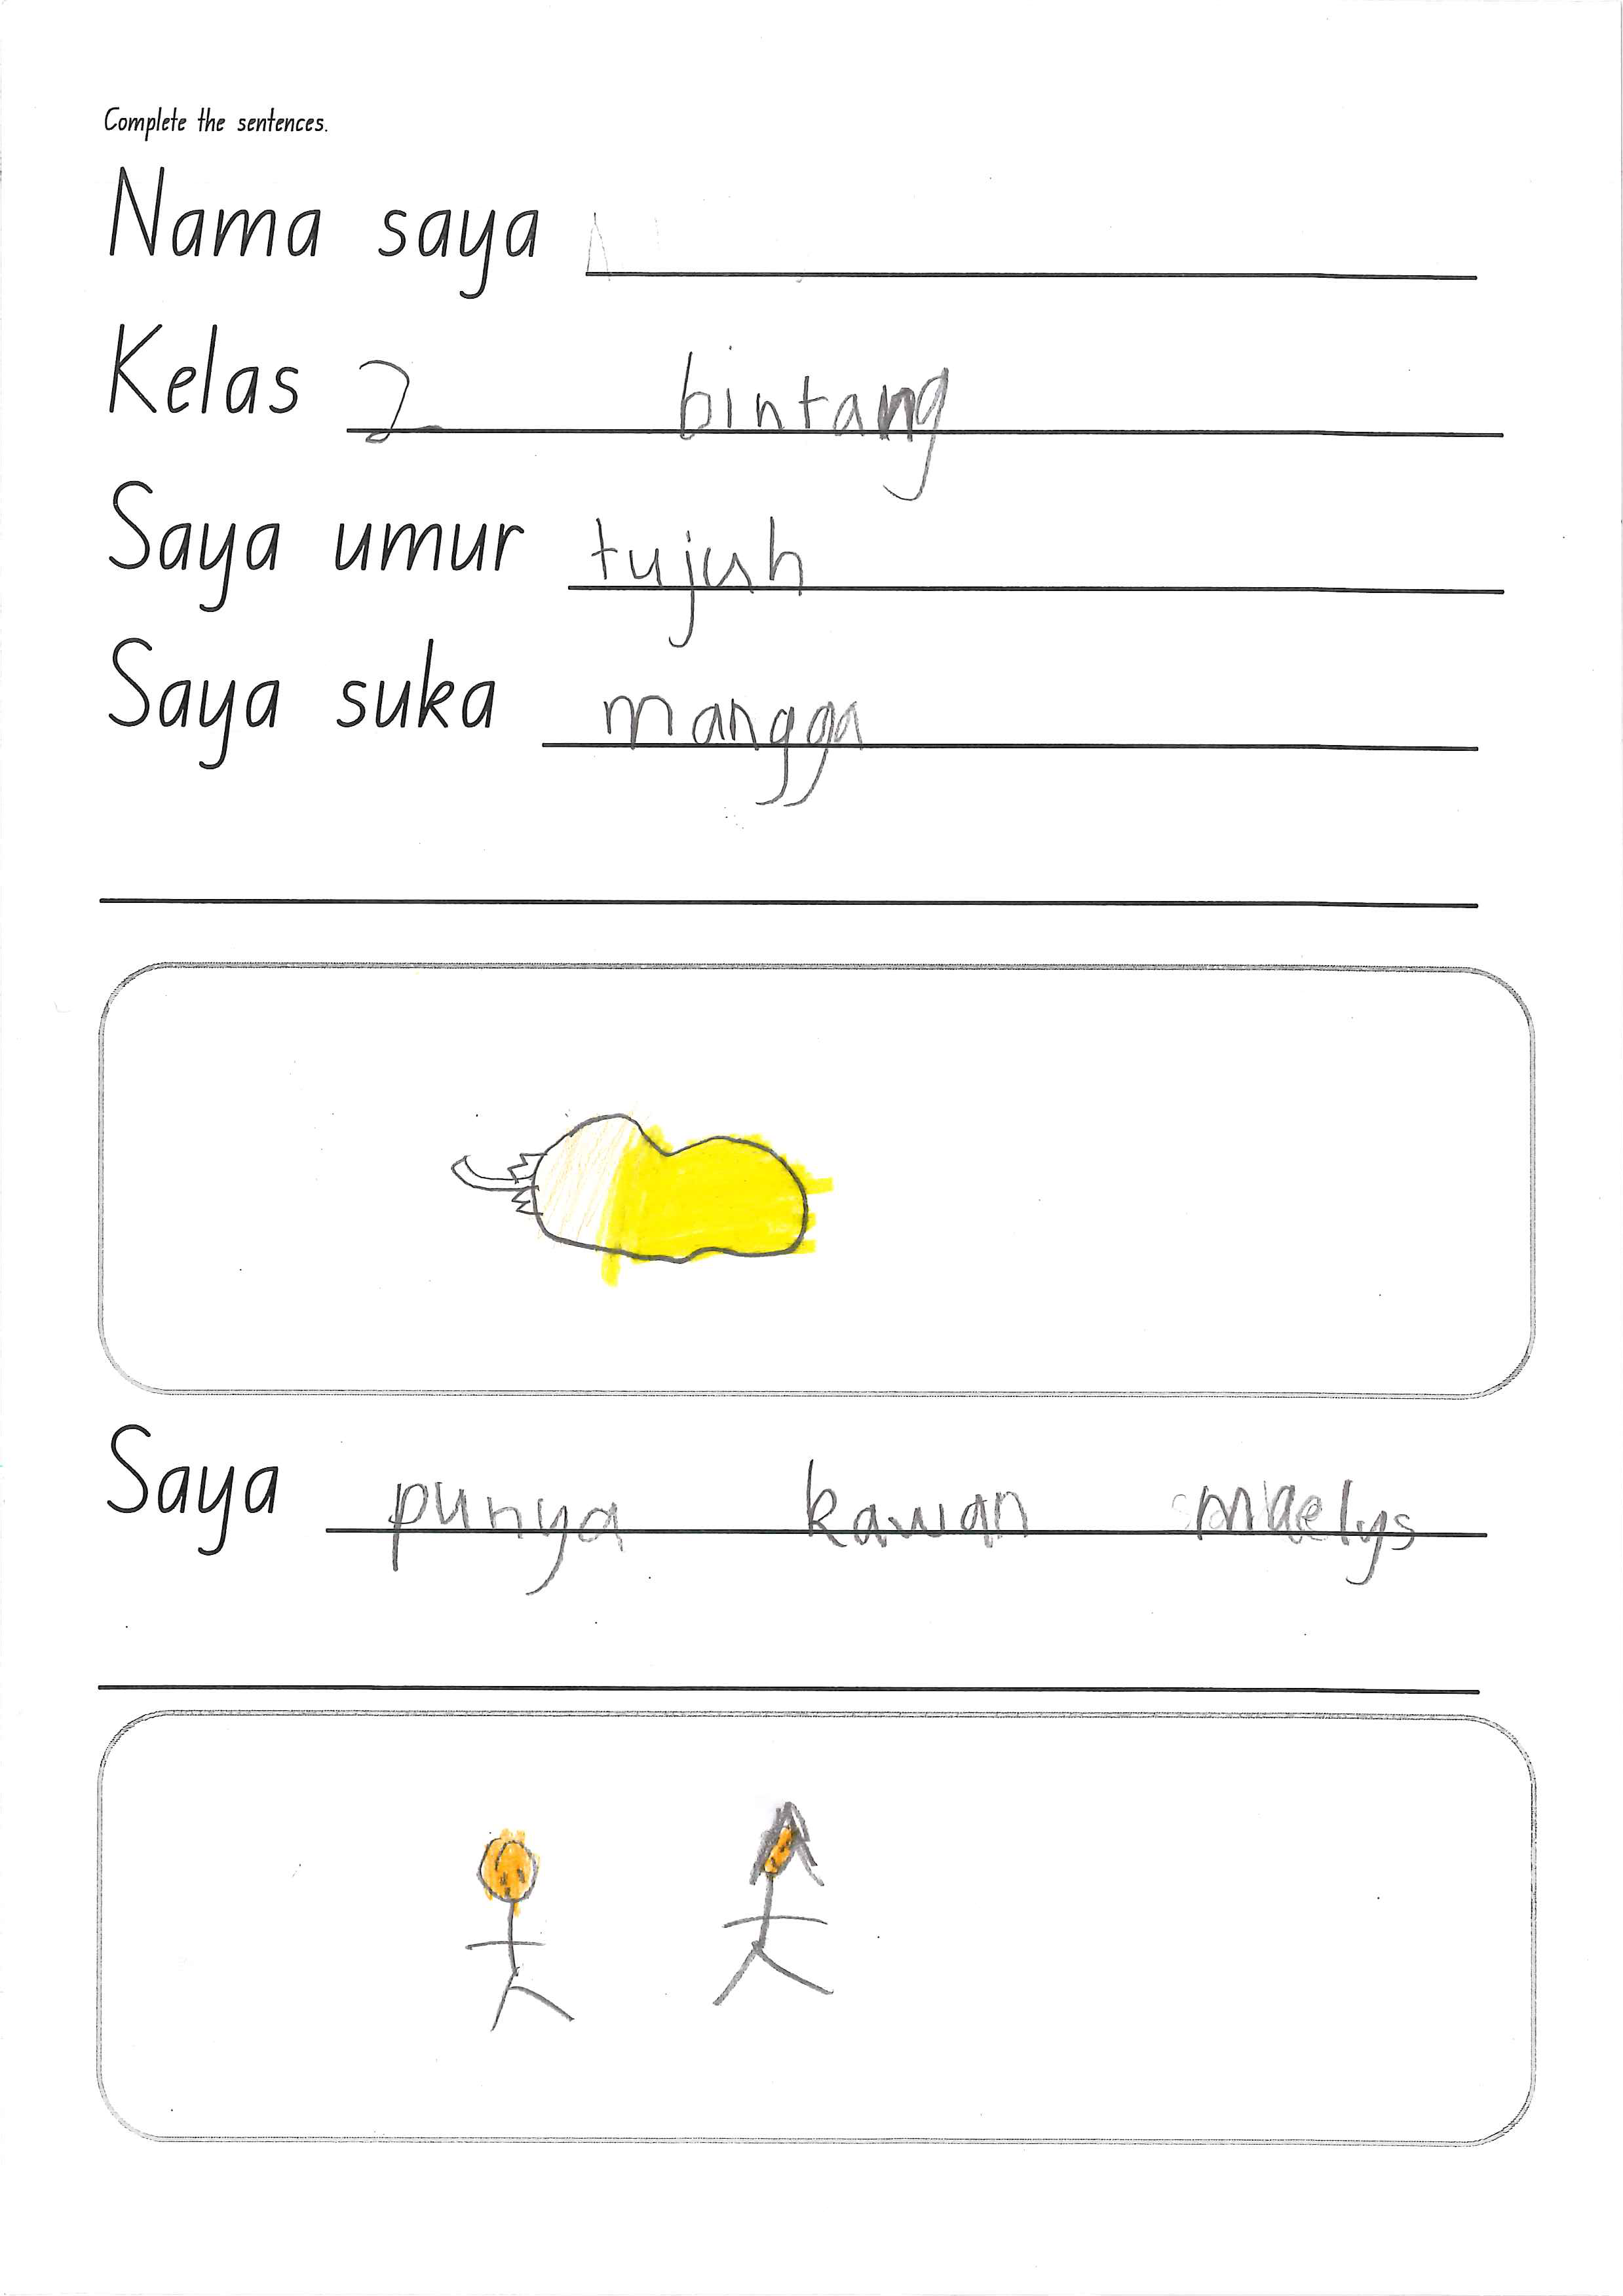 Complete the sentences.
Nama saya
Kelas 2 bintang
Saya umur tujuh
Saya suka mangga
Saya punya kawan maelys